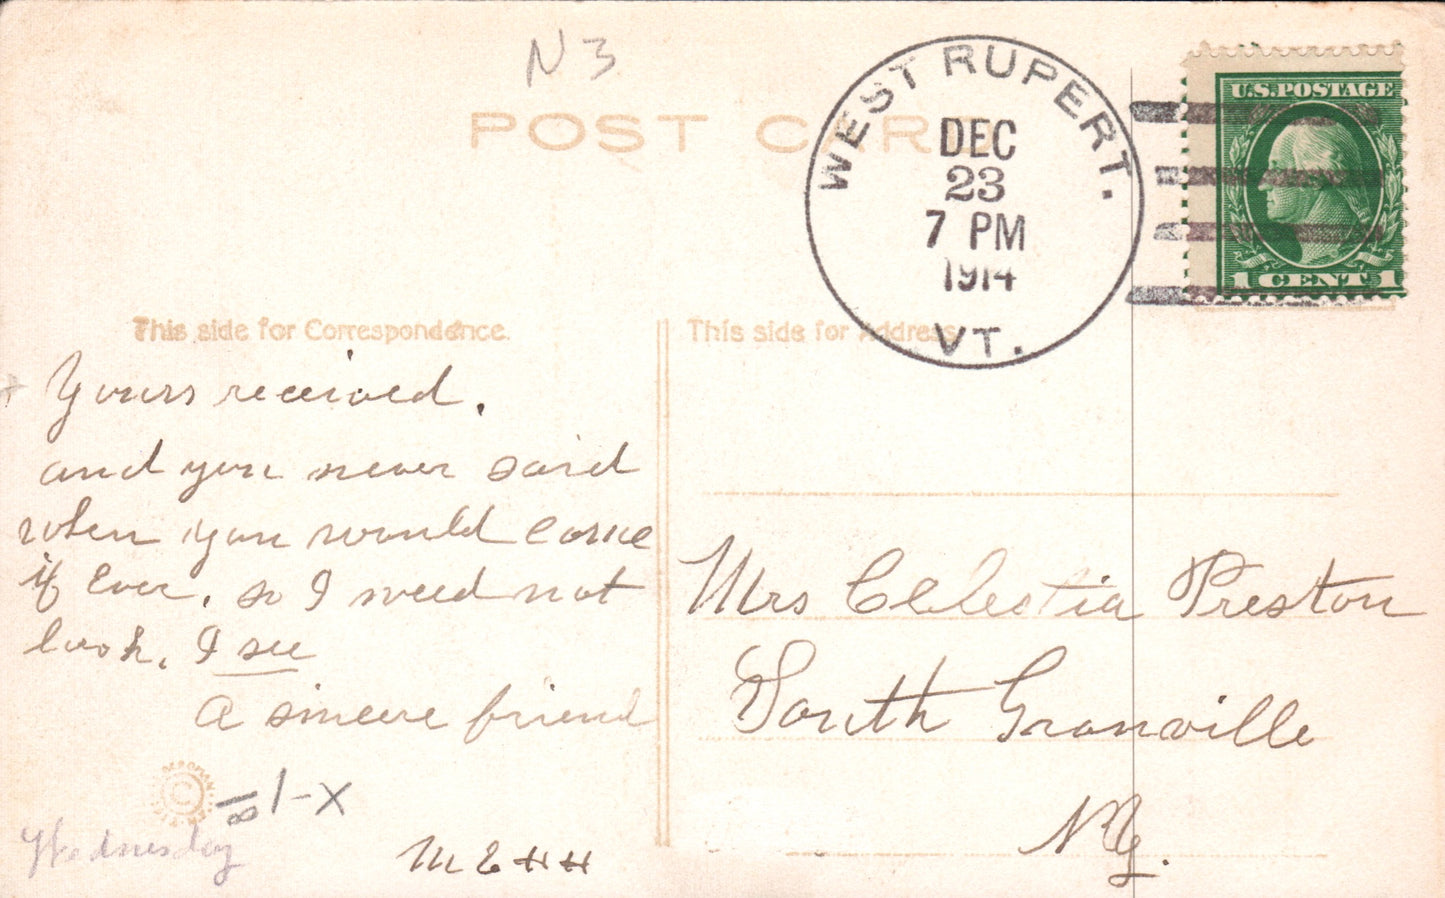 N 3
POST CARD
WEST RUPERT.
DEC
23
7 PM
1914
VT.
U.S.POSTAGE
1 CENT 1
This side for Correspondence.
This side for Address.
Yours received.
and you never said
when you would come
if Ever. so I need not
look. I see
A sincere friend
1-X
Wednesday
M E H H
Mrs Celestia Preston
South Granville
NY.